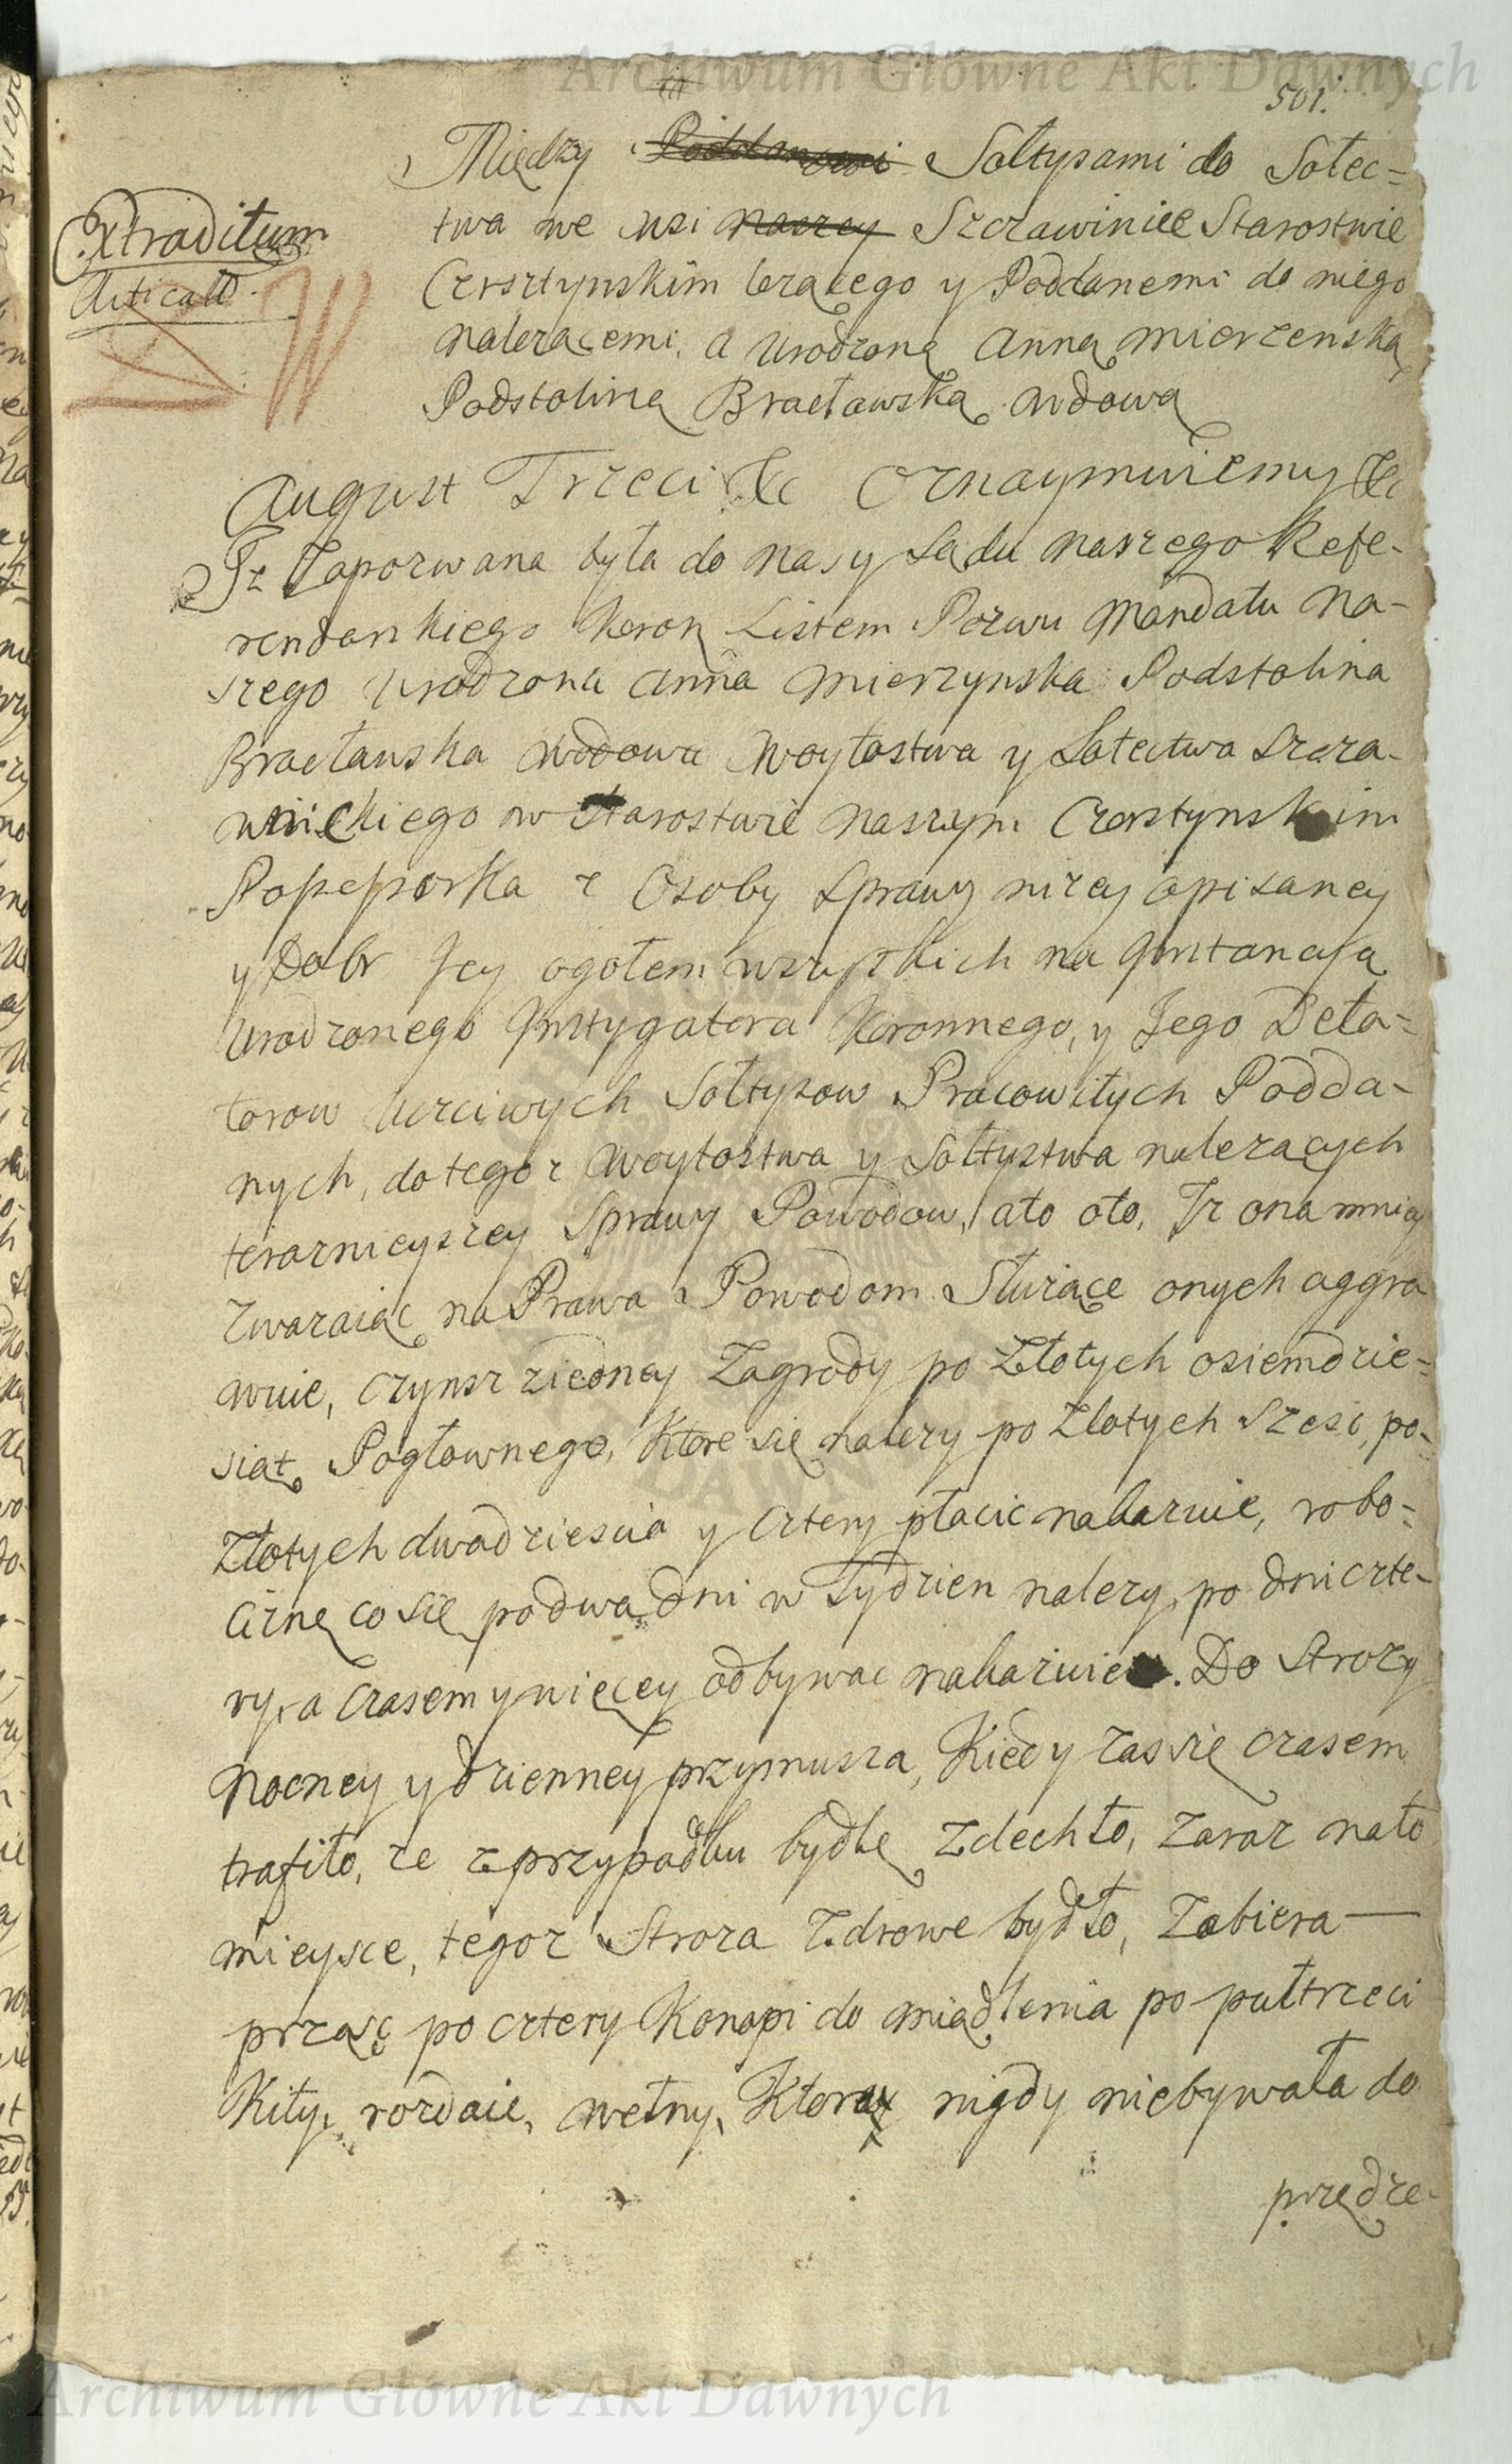 Archiwum Główne Akt Dawnych
501.
Między Poddanemi Sołtysami do Sołec=
twa we wsi naszey Szczawinice Starostwie
Czorsztynskim lezącego y Poddanemi do niego
nalezącemi, a Urodzoną Anną Mierzenską
Podstoliną Bracławską wdową
Extraditum
Aticatt
August Trzeci &c Oznaymuiemy &c
Iz Zapozwana była do Nas y Sądu naszego Refe-
rendarskiego Koron Listem Pozwu Mandatu Na-
szego Urodzona Anna Mierzynska Podstolina
Bracławska Wdowa Woytostwa y Sołectwa Szcza-
wnickiego w Starostwie naszym Czorstynskim
Possessorka z Osoby Sprawy nizey opisaney
y Dobr Jey ogołem wszystkich na Instancyą
Urodzonego Instygatora Koronnego, y Jego Dela-
torow Uczciwych Sołtysow Pracowitych Podda-
nych, do tegoz Woytostwa y Sołtystwa nalezących
terazniejszey Sprawy Powodow, ato oto, Iz ona mniey
zwazaiąc na Prawa Powodom Słuzące onych aggra
wuie, Czynsz ziedney Zagrody po Złotych osiemdzie=
siąt, Pogłownego, Ktore się nalezy po Złotych Szesc, po-
Złotych dwadziescia y Cztery płacic nakazuie, robo-
ciznę co się po dwa dni w Tydzien nalezy, po dni czte-
ry, a Czasem y więcey odbywac nakazuie. Do Strozy
Nocney y dzienney przymusza, Kiedy zas się czasem
trafiło, ze z przypadku bydle Zdechło, Zaraz na to
mieysce, tegoz Stroza Zdrowe bydło, Zabiera
prząsc po cztery Konopi do miądlenia po pułtrzeci
Kity, rozdaie, wełny, Ktora nigdy niebywała do
przędze-
Archiwum Główne Akt Dawnych